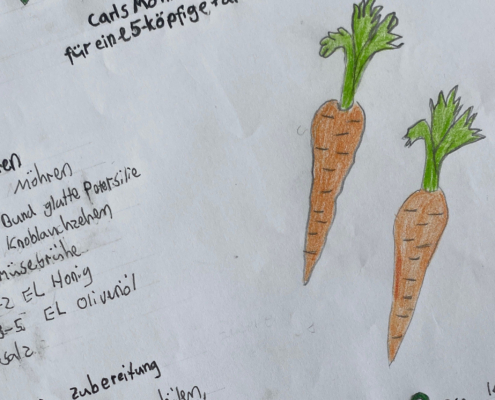 Carls Möh
für eine 5-köpfige Fa
en
Möhren
Bund glatte Petersilie
Knoblauchzehen
müsebrühe
-2 EL Honig
3-5 EL Olivenöl
salz
zubereitung